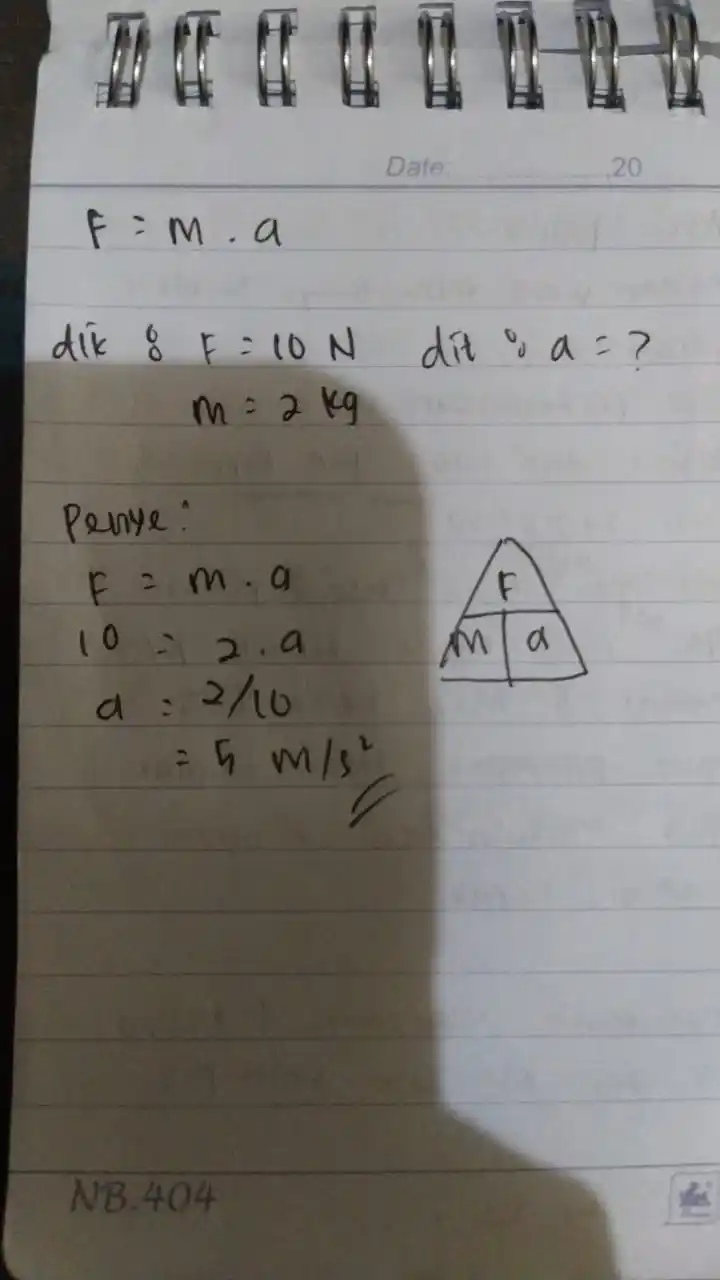 Date: 20
F = m . a
dik : F = 10 N dit : a = ?
m = 2 kg
Penye :
F = m . a
10 = 2 . a
a = 2/10
= 5 m/s²
F
m a
NB.404